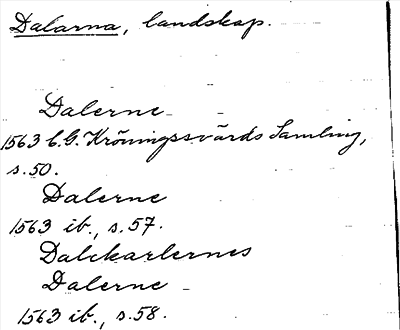 Dalarna, landskap.
Dalerne
1563 C.G. Kröningssvärds Samling,
s. 50.
Dalerne
1563 ib., s. 57.
Dalekarlernes
Dalerne
1563 ib., s. 58.